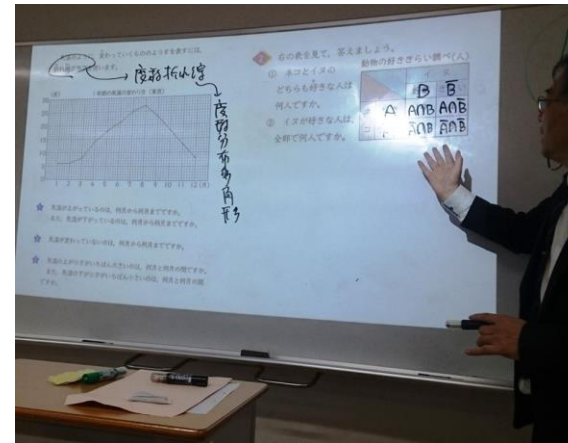 気温のように、変わっていくもののようすを表すには、
折れ線
度数折れ線
度数分布多角形
1年間の気温の変わり方（東京）
1 2 3 4 5 6 7 8 9 10 11 12(月)
気温が上がっているのは、何月から何月までですか。
また、気温が下がっているのは、何月から何月までですか。
気温が変わっていないのは、何月から何月までですか。
気温の上がり方がいちばん大きいのは、何月と何月の間ですか。
また、気温の下がり方がいちばん小さいのは、何月と何月の間
ですか。
2 右の表を見て、答えましょう。
① ネコとイヌの
どちらも好きな人は
何人ですか。
② イヌが好きな人は、
全部で何人ですか。
動物の好ききらい調べ(人)
イヌ
B B̅
A A∩B A∩B̅
A̅∩B A̅∩B̅